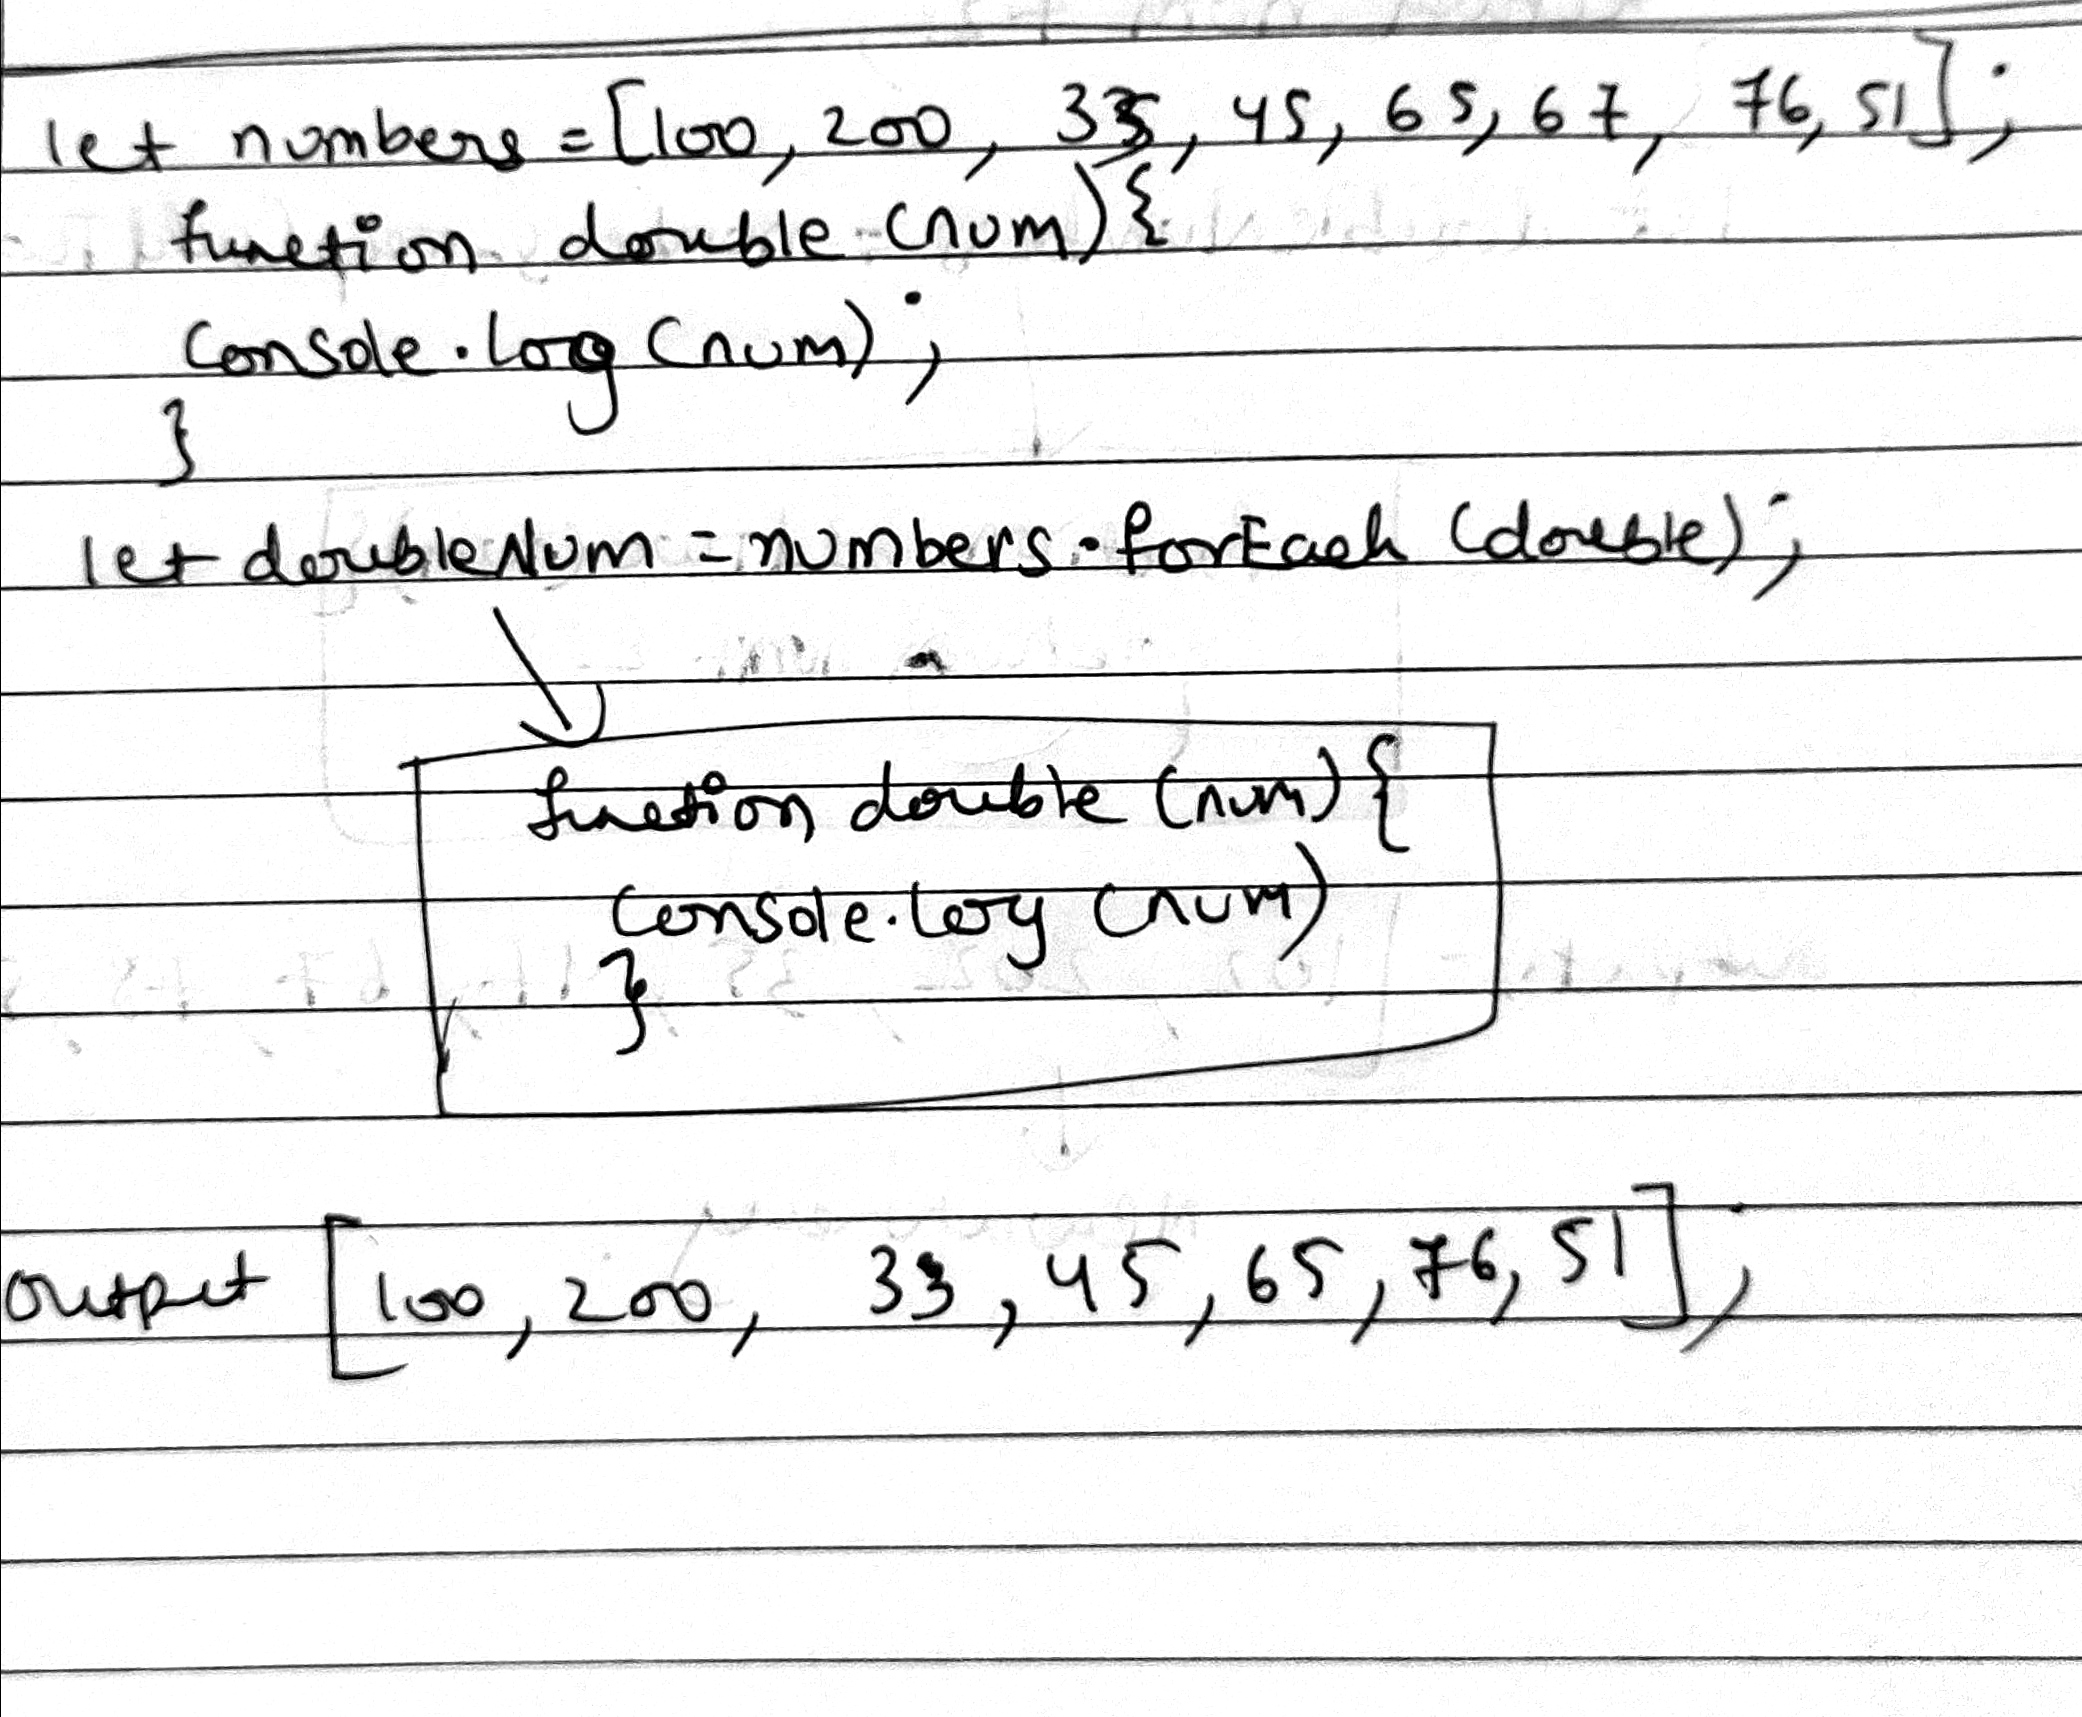 let numbers = [100, 200, 33, 45, 65, 67, 76, 51];
function double (num) {
Console.log (num);
}
let doubleNum = numbers.forEach (double);
function double (num) {
Console.log (num)
}
output [100, 200, 33, 45, 65, 76, 51];